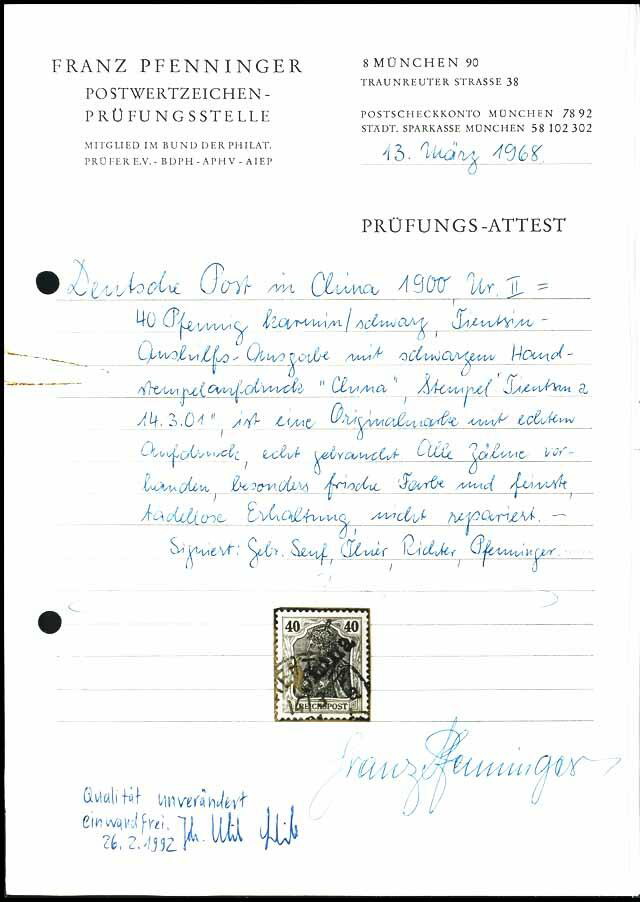 FRANZ PFENNINGER
POSTWERTZEICHEN-
PRÜFUNGSSTELLE
MITGLIED IM BUND DER PHILAT.
PRÜFER E.V. - BDPH - APHV - AIEP
8 MÜNCHEN 90
TRAUNREUTER STRASSE 38
POSTSCHECKKONTO MÜNCHEN 7892
STÄDT. SPARKASSE MÜNCHEN 58 102 302
13. März 1968
PRÜFUNGS-ATTEST
Deutsche Post in China 1900, Nr. II =
40 Pfennig karmin/schwarz, Tientsin-
Aushilfs-Ausgabe mit schwarzem Hand-
stempelaufdruck "China", Stempel "Tientsin a
14.3.01", ist eine Originalmarke mit echtem
Aufdruck, echt gebraucht. Alle Zähne vor-
handen, besonders frische Farbe und feinste,
tadellose Erhaltung, nicht repariert. -
Signiert: Gebr. Senf, Richter, Pfenninger.
40 40
China
REICHSPOST
Franz Pfenninger
Qualität unverändert
einwandfrei.
26.2.1992